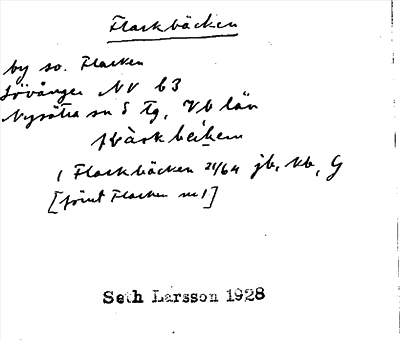 Flarkbäcken
by so. Flarken
Lövånger NV b3
Nysätra sn S Tg, Vb län
1 Flarkbäcken 21/64 jb, kb, G
[jämt Flarken nr 1]
Seth Larsson 1928